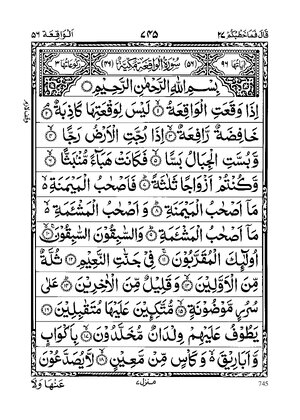 قَالَ فَمَا خَطْبُكُمْ ٢٧ ٧٤٥ اَلْوَاقِعَة ٥٦
اٰيَاتُهَا ٩٦ (٥٦) سُوْرَةُ الْوَاقِعَةِ مَكِّيَّةٌ (٤٦) رُكُوْعَاتُهَا ٣
بِسْمِ اللّٰهِ الرَّحْمٰنِ الرَّحِيْمِ
اِذَا وَقَعَتِ الْوَاقِعَةُ ۙ۝١ لَيْسَ لِوَقْعَتِهَا كَاذِبَةٌ ۘ۝٢
خَافِضَةٌ رَّافِعَةٌ ۙ۝٣ اِذَا رُجَّتِ الْاَرْضُ رَجًّا ۙ۝٤
وَّ بُسَّتِ الْجِبَالُ بَسًّا ۙ۝٥ فَكَانَتْ هَبَآءً مُّنْۢبَثًّا ۙ۝٦
وَّ كُنْتُمْ اَزْوَاجًا ثَلٰثَةً ؕ۝٧ فَاَصْحٰبُ الْمَيْمَنَةِ ۙ۬
مَاۤ اَصْحٰبُ الْمَيْمَنَةِ ؕ۝٨ وَ اَصْحٰبُ الْمَشْـَٔمَةِ ۙ۬
مَاۤ اَصْحٰبُ الْمَشْـَٔمَةِ ؕ۝٩ وَ السّٰبِقُوْنَ السّٰبِقُوْنَ ۚۙ۝١٠
اُولٰٓئِكَ الْمُقَرَّبُوْنَ ۚ۝١١ فِيْ جَنّٰتِ النَّعِيْمِ ۝١٢ ثُلَّةٌ
مِّنَ الْاَوَّلِيْنَ ۙ۝١٣ وَ قَلِيْلٌ مِّنَ الْاٰخِرِيْنَ ؕ۝١٤ عَلٰى
سُرُرٍ مَّوْضُوْنَةٍ ۙ۝١٥ مُّتَّكِـِٕيْنَ عَلَيْهَا مُتَقٰبِلِيْنَ ۝١٦
يَطُوْفُ عَلَيْهِمْ وِلْدَانٌ مُّخَلَّدُوْنَ ۙ۝١٧ بِاَكْوَابٍ
وَّ اَبَارِيْقَ ۙ۬ وَ كَاْسٍ مِّنْ مَّعِيْنٍ ۙ۝١٨ لَّا يُصَدَّعُوْنَ
عَنْهَا وَلَا منزل ٧ 745